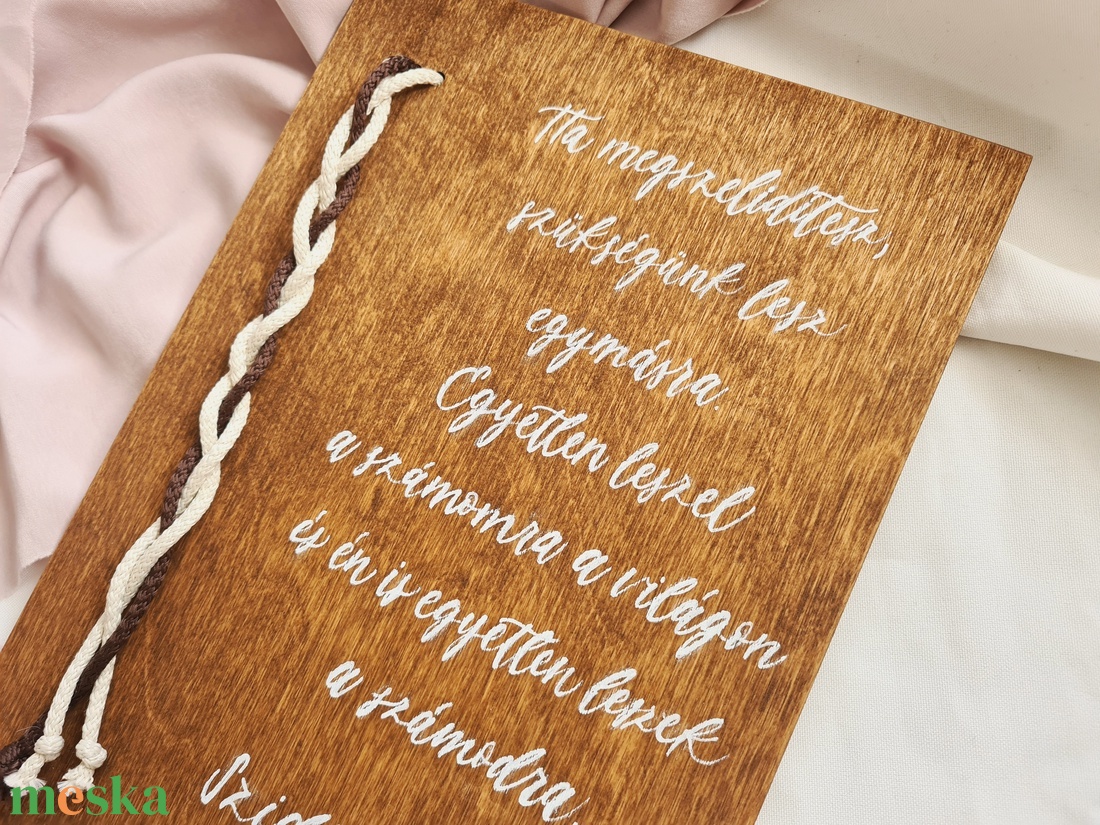 Ha megszelidítesz,
szükségünk lesz
egymásra.
Egyetlen leszel
a számomra a világon
és én is egyetlen leszek
a számodra.
meska